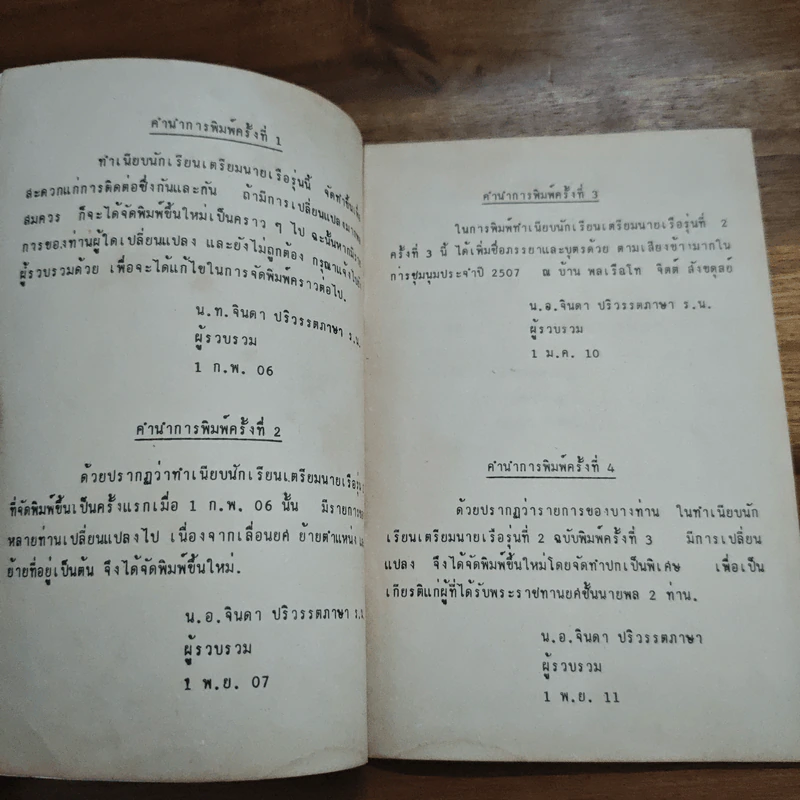 คำนำการพิมพ์ครั้งที่ 1
ทำเนียบนักเรียนเตรียมนายเรือรุ่นนี้ จัดทำขึ้น
สะดวกแก่การติดต่อซึ่งกันและกัน ถ้ามีการเปลี่ยนแปลงมาก
สมควร ก็จะได้จัดพิมพ์ขึ้นใหม่เป็นคราว ๆ ไป ฉะนั้นหากมี
การของท่านผู้ใดเปลี่ยนแปลง และยังไม่ถูกต้อง กรุณาแจ้ง
ผู้รวบรวมด้วย เพื่อจะได้แก้ไขในการจัดพิมพ์คราวต่อไป.
น.ท.จินดา ปริวรรตภาษา ร.น.
ผู้รวบรวม
1 ก.พ. 06
คำนำการพิมพ์ครั้งที่ 2
ด้วยปรากฏว่าทำเนียบนักเรียนเตรียมนายเรือรุ่น
ที่จัดพิมพ์ขึ้นเป็นครั้งแรกเมื่อ 1 ก.พ. 06 นั้น มีรายการ
หลายท่านเปลี่ยนแปลงไป เนื่องจากเลื่อนยศ ย้ายตำแหน่ง
ย้ายที่อยู่เป็นต้น จึงได้จัดพิมพ์ขึ้นใหม่.
น.อ.จินดา ปริวรรตภาษา ร.น
ผู้รวบรวม
1 พ.ย. 07
คำนำการพิมพ์ครั้งที่ 3
ในการพิมพ์ทำเนียบนักเรียนเตรียมนายเรือรุ่นที่ 2
ครั้งที่ 3 นี้ ได้เพิ่มชื่อภรรยาและบุตรด้วย ตามเสียงข้างมากใน
การชุมนุมประจำปี 2507 ณ บ้าน พลเรือโท จิตต์ สังขดุลย์
น.อ.จินดา ปริวรรตภาษา ร.น.
ผู้รวบรวม
1 ม.ค. 10
คำนำการพิมพ์ครั้งที่ 4
ด้วยปรากฏว่ารายการของบางท่าน ในทำเนียบนัก
เรียนเตรียมนายเรือรุ่นที่ 2 ฉบับพิมพ์ครั้งที่ 3 มีการเปลี่ยน
แปลง จึงได้จัดพิมพ์ขึ้นใหม่โดยจัดทำปกเป็นพิเศษ เพื่อเป็น
เกียรติแก่ผู้ที่ได้รับพระราชทานยศชั้นนายพล 2 ท่าน.
น.อ.จินดา ปริวรรตภาษา
ผู้รวบรวม
1 พ.ย. 11